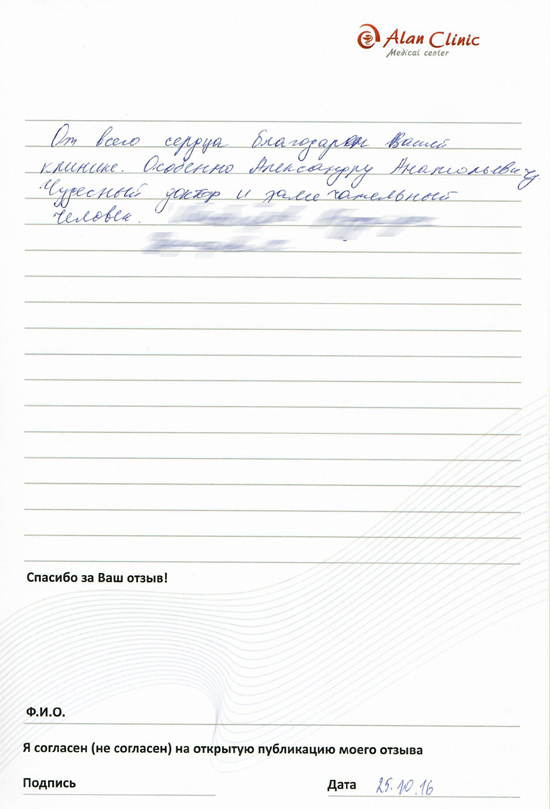 Alan Clinic
Medical center
От всего сердца благодарен Вашей
клинике. Особенно Александру Анатольевичу.
Чудесный доктор и замечательный
человек.
Спасибо за Ваш отзыв!
Ф.И.О.
Я согласен (не согласен) на открытую публикацию моего отзыва
Подпись
Дата 25.10.16